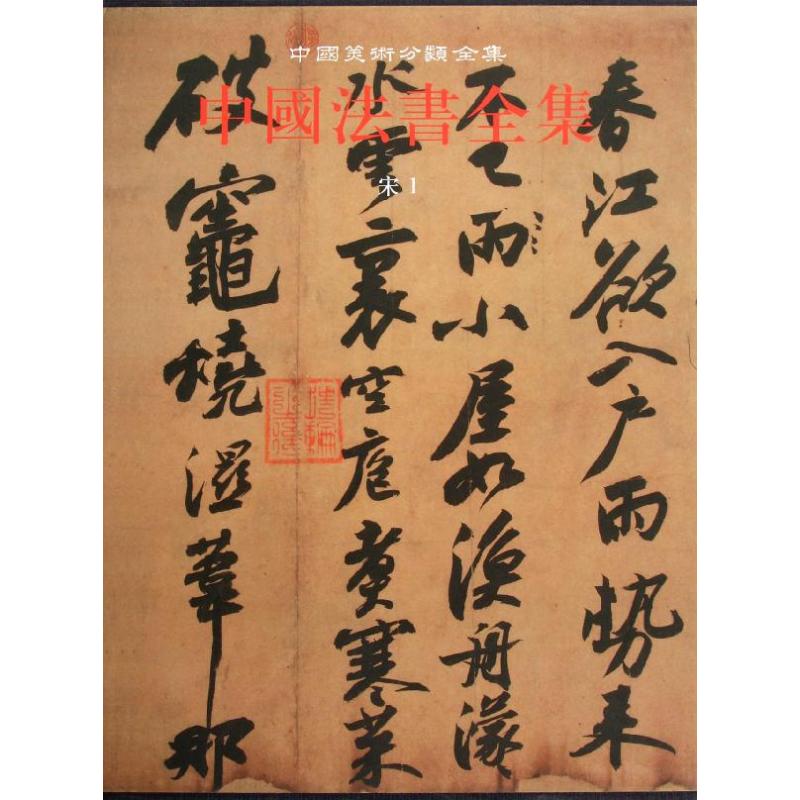 中國美術分類全集
中國法書全集
宋1
春江欲入戶雨勢來
不已雨小屋如漁舟濛〻
水雲裏空庖煮寒菜
破竈燒濕葦那